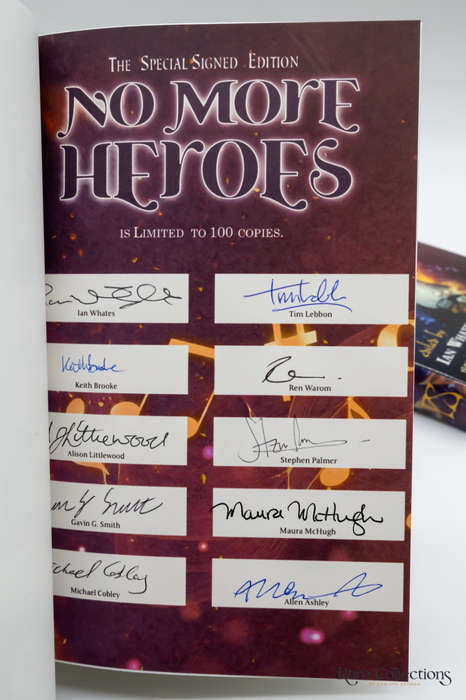 The Special Signed Edition
No More
Heroes
is Limited to 100 copies.
Ian Whates
Tim Lebbon
Keith Brooke
Keith Brooke
Ren Warom
Littlewood
Alison Littlewood
Stephen Palmer
Smith
Gavin G. Smith
Maura McHugh
Maura McHugh
Michael Cobley
Allen Ashley
Collections